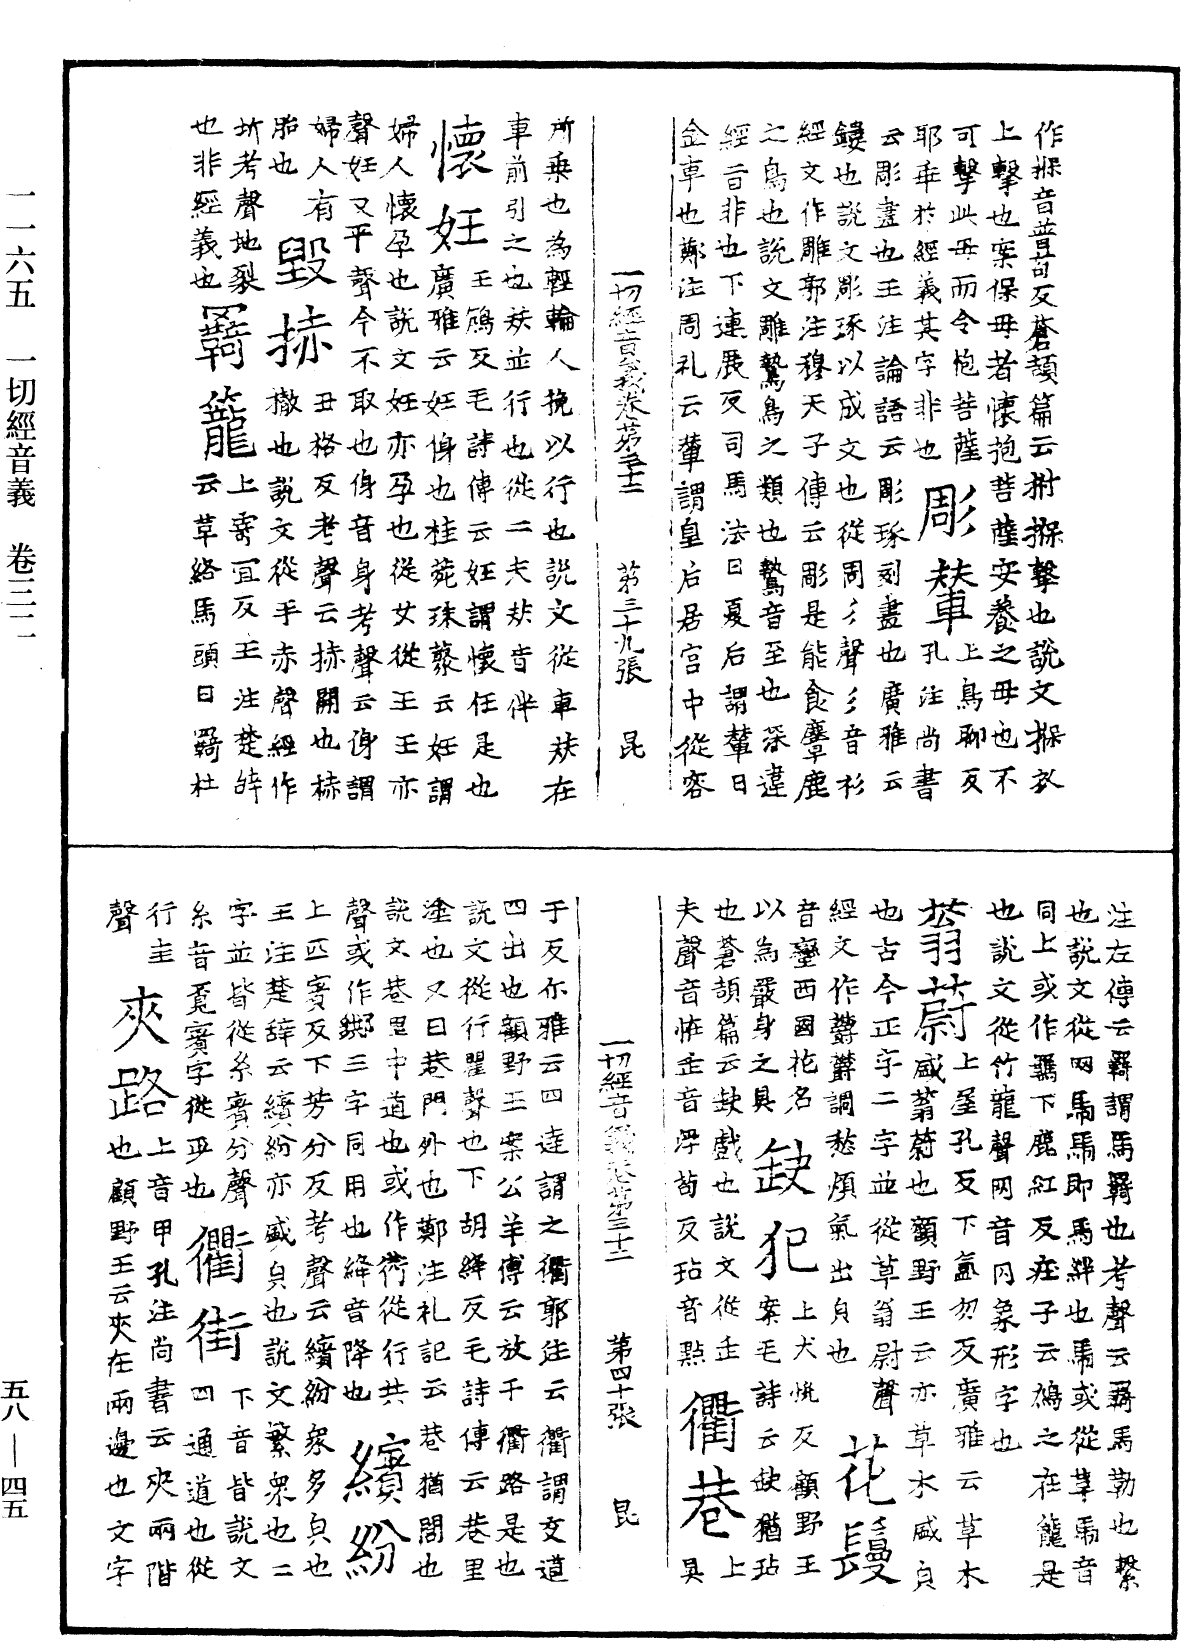 作㨐音普茍反蒼頡篇云拊㨐擊也說文㨐衣
上擊也案保母者懷抱菩薩安養之母也不
可擊此母而令怉菩薩
耶乖於經義其字非也彫輦上鳥聊反
孔注尚書
云彫畫也王注論語云彫琢刻畫也廣雅云
鏤也說文彫琢以成文也從周彡聲彡音衫
經文作雕郭注穆天子傳云彫是能食麞鹿
之鳥也說文雕鷙鳥之類也鷙音至也深違
經音非也下連展反司馬法曰夏后謂輦曰
金車也鄭注周礼云輦謂皇后居宮中從容
一切經音義卷第三十二 第三十九張 昆
所乗也為輕輪人挽以行也說文從車㚘在
車前引之也㚘並行也從二夫㚘音伴
懷妊壬鴆反毛詩傳云妊謂懷任是也
廣雅云妊身也桂菀珠藂云妊謂
婦人懷孕也說文妊亦孕也從女從壬壬亦
聲妊又平聲今不取也身音身考聲云身謂
婦人有
胎也毀㨋丑格反考聲云㨋開也㨋
撤也說文從手赤聲經作
坼考聲地裂
也非經義也羈籠上寄冝反王注楚辞
云草絡馬頭曰羈杜
注左傳云羈謂馬羈也考聲云羈馬勒也繫
也說文從网馬馬即馬絆也馬或從革馬音
同上或作羈下鹿紅反莊子云鳩之在籠是
也說文從竹龍聲网音冈象形字也
蓊蔚上屋孔反下氳勿反廣雅云草木
咸蓊蔚也顧野王云亦草木咸皃
也古今正字二字並從草翁尉聲
經文作欝欝謂愁煩氣出皃也花鬘
音蠻西國花名
以為嚴身之具缺犯上犬恱反顧野王
案毛詩云缺猶玷
也蒼頡篇云缺戲也說文從缶
夬聲音怪缶音浮茍反玷音點衢巷上
具
一切經音義卷第三十二 第四十張 昆
于反尒雅云四達謂之衢郭注云衢謂交道
四出也顧野王案公羊傳云放千衢路是也
說文從行瞿聲也下胡絳反毛詩傳云巷里
塗也又曰巷門外也鄭注礼記云巷猶閭也
說文巷里中道也或作衖從行共
聲或作䢽三字同用也絳音降也繽紛
上匹賓反下芳分反考聲云繽紛衆多皃也
王注楚辞云繽紛亦咸皃也說文繁衆也二
字並皆從糸賓分聲
糸音覓賓字從丏也衢街下音皆說文
四通道也從
行圭
聲夾路上音甲孔注尚書云夾兩階
也顧野王云夾在兩邊也文字
一一六五 一切經音義 卷三二
五八—四五